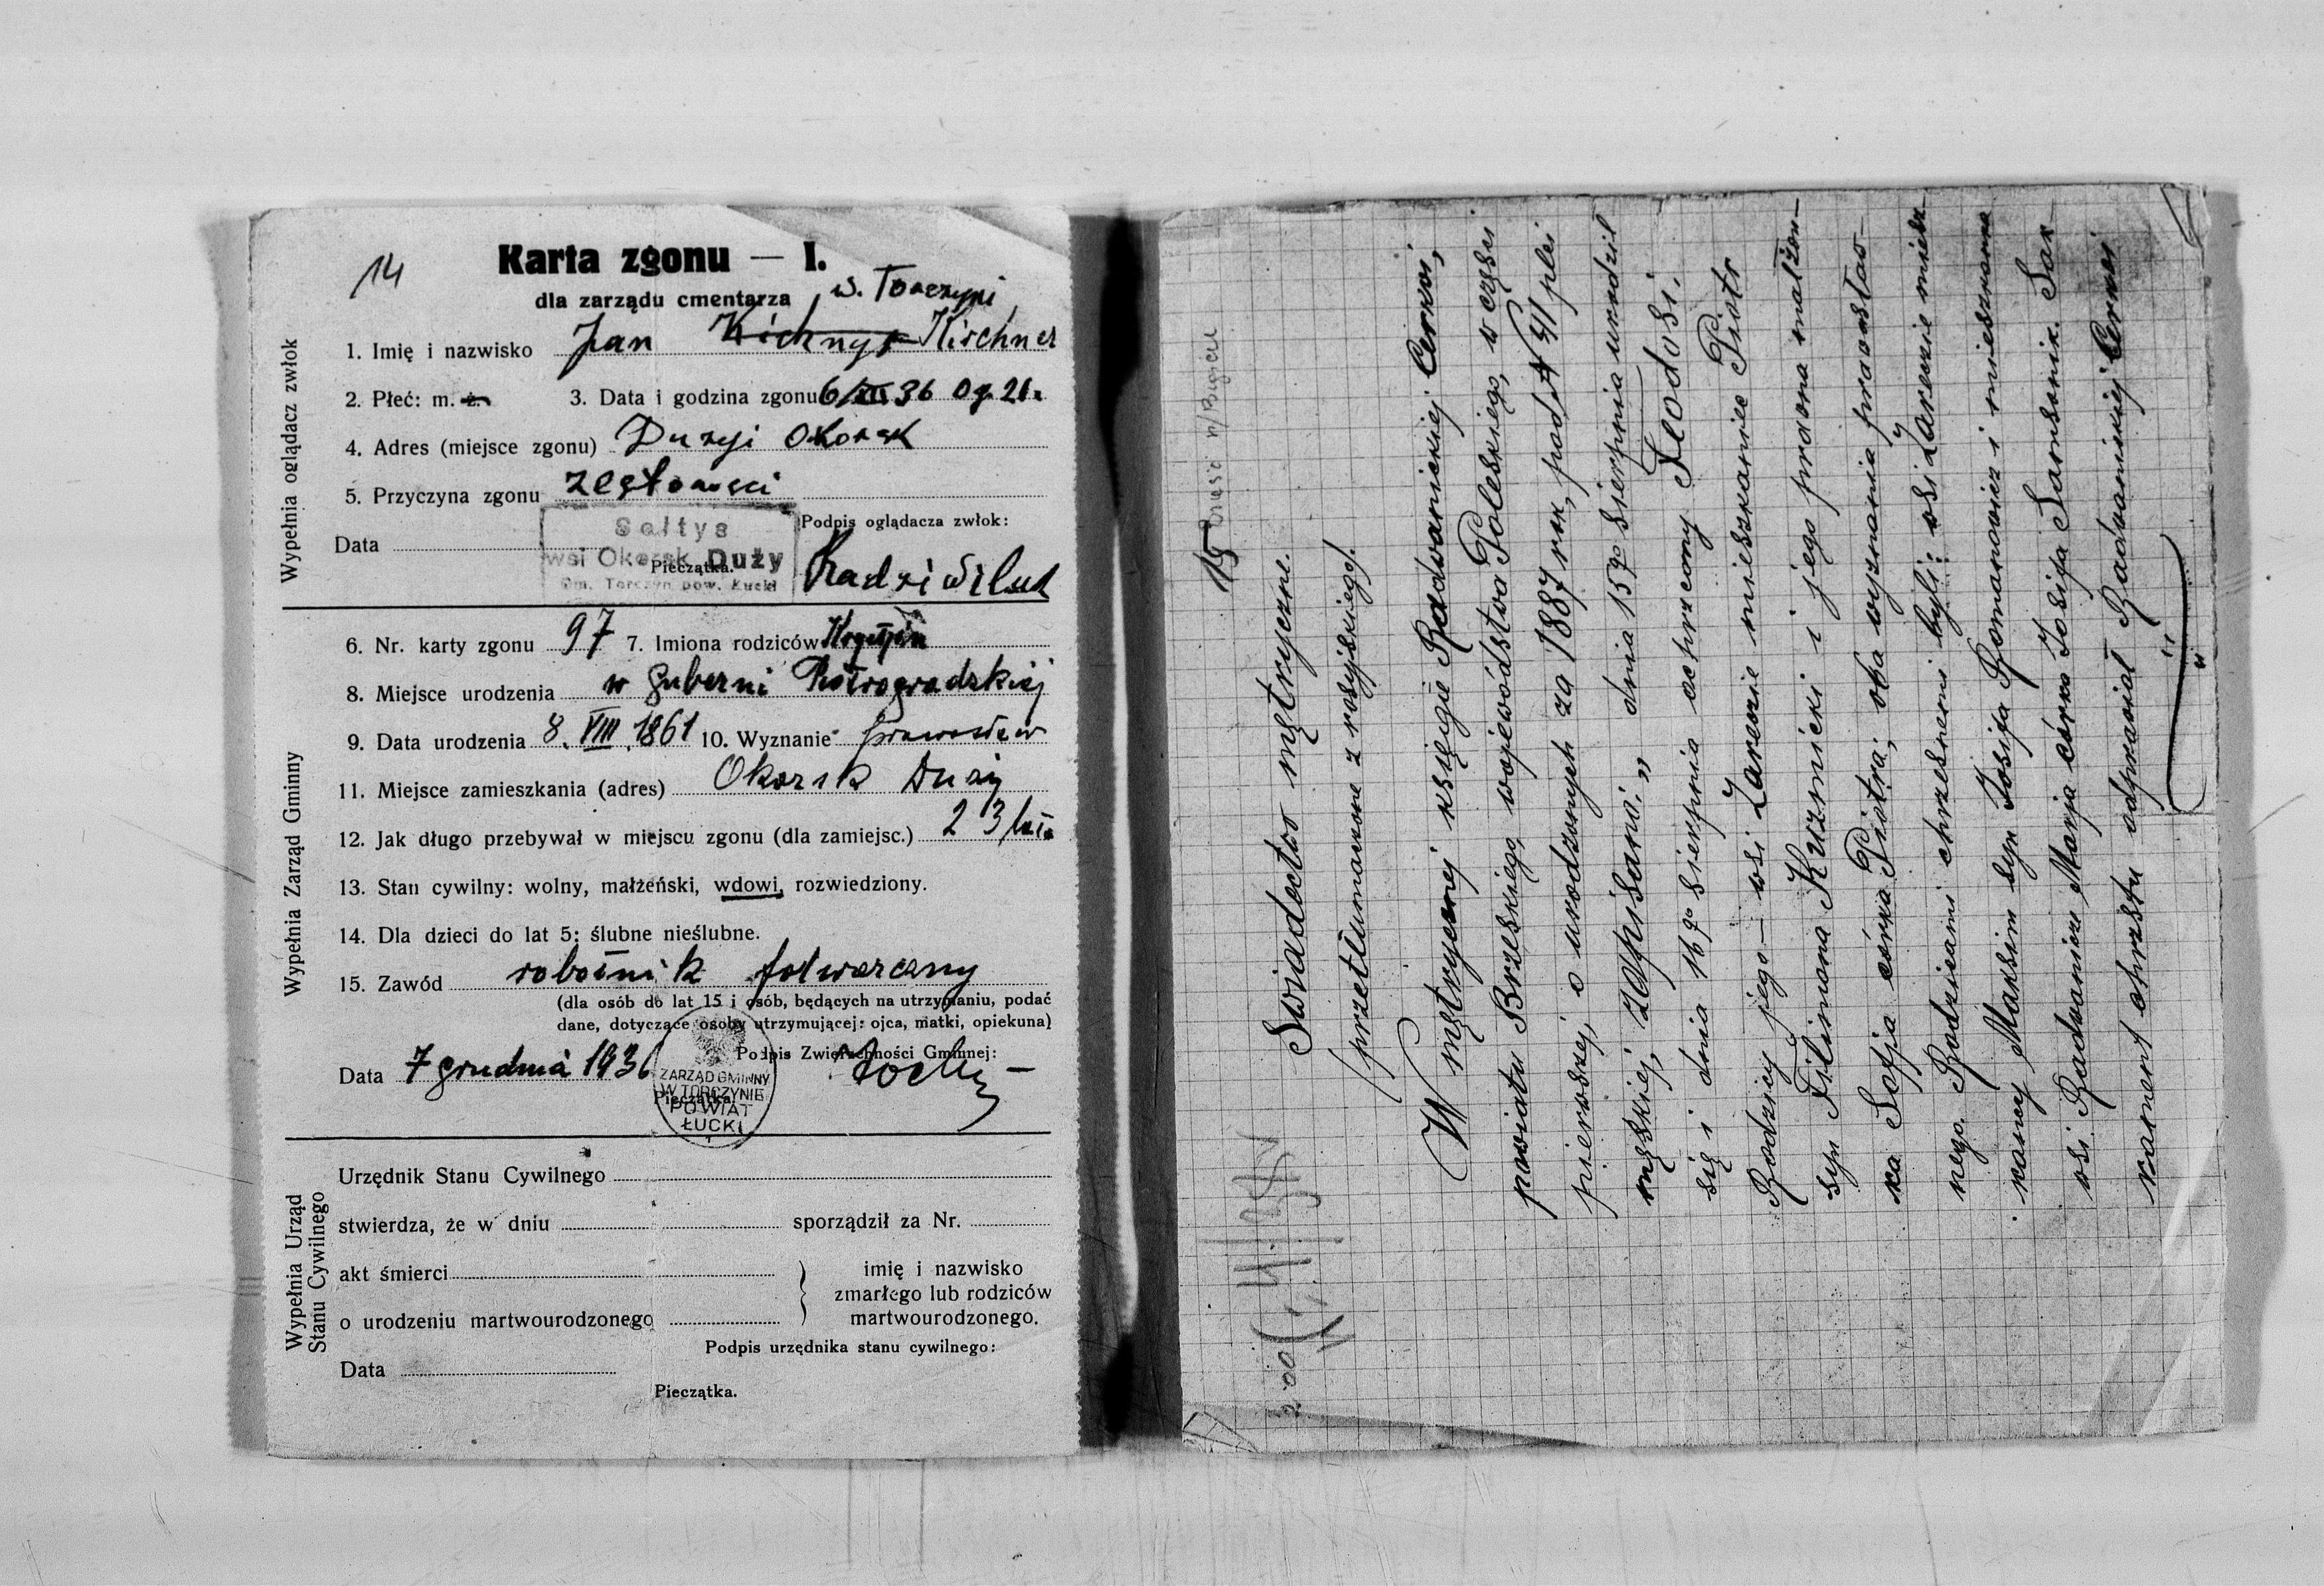 14
Karta zgonu — I.
dla zarządu cmentarza w. Torczyni
Wypełnia oglądacz zwłok
1. Imię i nazwisko Jan Kichnyr Kirchner
2. Płeć: m. ż. 3. Data i godzina zgonu 6/XII 36 Og. 21.
4. Adres (miejsce zgonu) Duzyi Okorsk
5. Przyczyna zgonu
Podpis oglądacza zwłok:
Data
Sołtys
wsi Okorsk Duży
Gm. Torczyn pow. Łucki
Pieczątka.
Wypełnia Zarząd Gminny
6. Nr. karty zgonu 97 7. Imiona rodziców
8. Miejsce urodzenia w guberni Piotrogradzkiej
9. Data urodzenia 8. VIII. 1861 10. Wyznanie prawosław
11. Miejsce zamieszkania (adres) Okorsk Duży
12. Jak długo przebywał w miejscu zgonu (dla zamiejsc.) 23 lat
13. Stan cywilny: wolny, małżeński, wdowi, rozwiedziony.
14. Dla dzieci do lat 5: ślubne nieślubne.
15. Zawód robotnik folwarczny
(dla osób do lat 15 i osób, będących na utrzymaniu, podać
dane, dotyczące osoby utrzymującej: ojca, matki, opiekuna)
Podpis Zwierzchności Gminnej:
Data 7 grudnia 1936
Pieczątka.
ZARZĄD GMINNY
W TORCZYNIE
POWIAT
ŁUCKI
Wypełnia Urząd
Stanu Cywilnego
Urzędnik Stanu Cywilnego
stwierdza, że w dniu sporządził za Nr.
akt śmierci
o urodzeniu martwourodzonego
imię i nazwisko
zmarłego lub rodziców
martwourodzonego.
Podpis urzędnika stanu cywilnego:
Data
Pieczątka.
15 Brześć n/Bugiem
Swiadectwo mętryczne.
(przetłumaczone z rosyjskiego).
W mętrycznej księgie Radwanickiej Cerkwi,
powiatu Brzeskiego, wojewódstwa Poleskiego, w częsci
pierwszej, o urodzonych za 1887 rok, pod № 41 płci
męskiej, zapisano: „ dnia 15go sierpnia urodził
się i dnia 16go sierpnia ochrzcony Feodosi.
Rodzicy jego — wsi Zarecze mieszkaniec Piotr
syn Filimona Kuzmicki i jego prawna małżon-
ka Sofja córka Piotra; oba wyznania prawosław-
nego. Rodzicami chrzesnemi byli: wsi Zarecze miesz-
kaniec Maksim syn Iosifa Romanowicz i mieszkanka
wsi Radwanicze Marja córka Iosifa Sansznik. Sak-
rament chrzstu odprawiał Radwanickiej Cerkwi